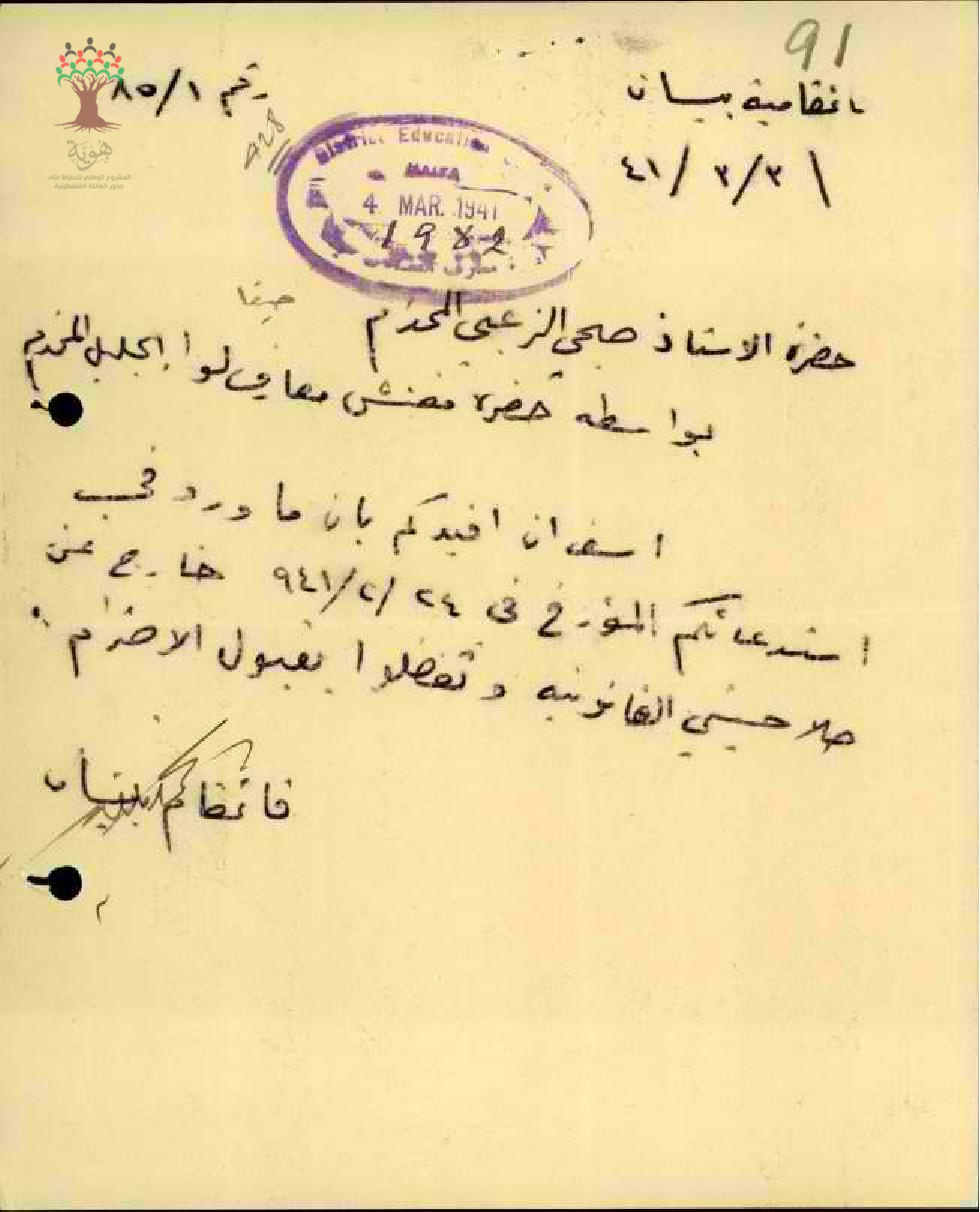 91
قائمقامية بيسان
رقم ٨٥/١
٤١/٣/٣
A28
District Education
HAIFA
4 MAR. 1941
1982
معارف
حيفا
حضرة الاستاذ صبحي الزعبي المحترم
بواسطه حضرة مفتش معارف لوا الجليل المحترم
اسف ان افيدكم بان ما ورد في
استدعائكم المؤرخ في ٢٤/٢/٩٤١ خارج عن
صلاحيتي القانونيه وتفضلوا بقبول الاحترام
قائمقام بيسان
هوية
المشروع الوطني للحفاظ على
جذور العائلة الفلسطينية